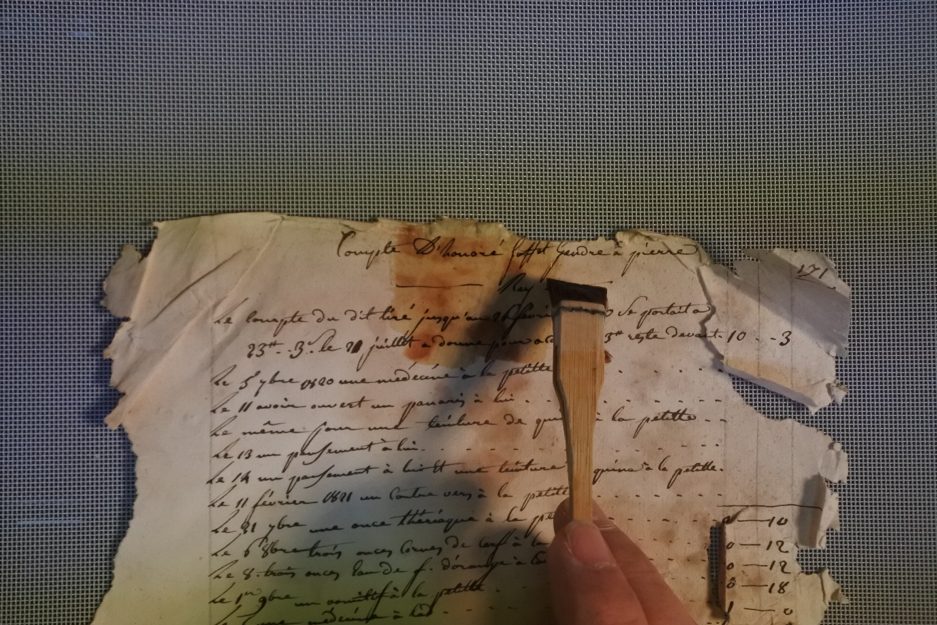 171
Compte D'honoré Coffet Gendre à pierre
Rey
Le compte du dit tiré jusqu'au se portait a
23#. 3s. le 21 juillet a donné reste devant. 10 .. 3
Le 5 7bre 1820 une médecine à la petitte
Le 11 avoir ouvert un panaris à lui
Le même pour une teinture de quina à la petitte
Le 13 un pansement à lui
Le 14 un pansement à lui et une teinture quina à la petitte.
Le 11 février 1821 un contre vers à la petitte
Le 21 7bre une once thériaque à la 0 — 10
Le 6 8bre trois onces cornes de cerf à la 0 — 12
Le 8. trois onces eau de f. d'orange à 0 — 12
Le 1er 9bre un à la petitte 0 — 18
une médecine à 1 — 0